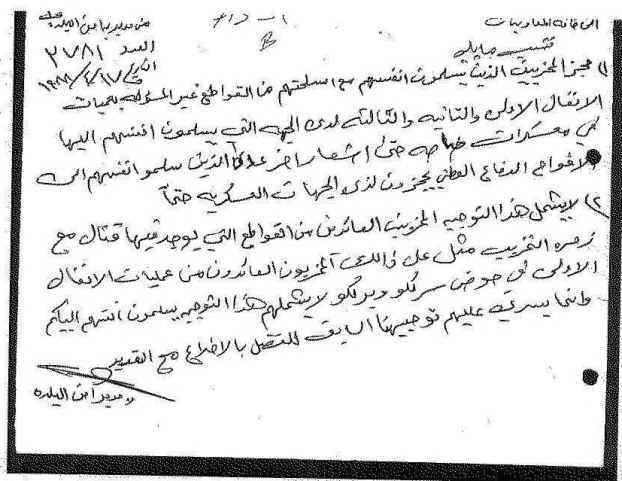 من مديرية امن
العدد ٢٧٨١
التاريخ ١٩٨٨/٤/١٧
B
ننسب مايلي
١) حجز المخربين الذين يسلمون انفسهم مع اسلحتهم من القواطع غير المشموله بعمليات
الانفال الاولى والثانيه والثالثه لدى الجهه التي يسلمون انفسهم اليها
في معسكرات خاصه حتى اشعار اخر عدا الذين سلمو انفسهم الى
افواج الدفاع الوطني يحجزون لدى الجهات العسكريه حتماً
٢) لايشمل هذا التوجيه المخربين العائدين من القواطع التي يوجد فيها قتال مع
زمره التخريب مثل على ذالك المخربون العائدون من عمليات الانفال
الاولى في حوض سركلو وبركلو لايشملهم هذا التوجيه يسلمون انفسهم اليكم
وانما يسري عليهم توجيهنا السابق للتفضل بالاطلاع مع التقدير
مدير امن البلده